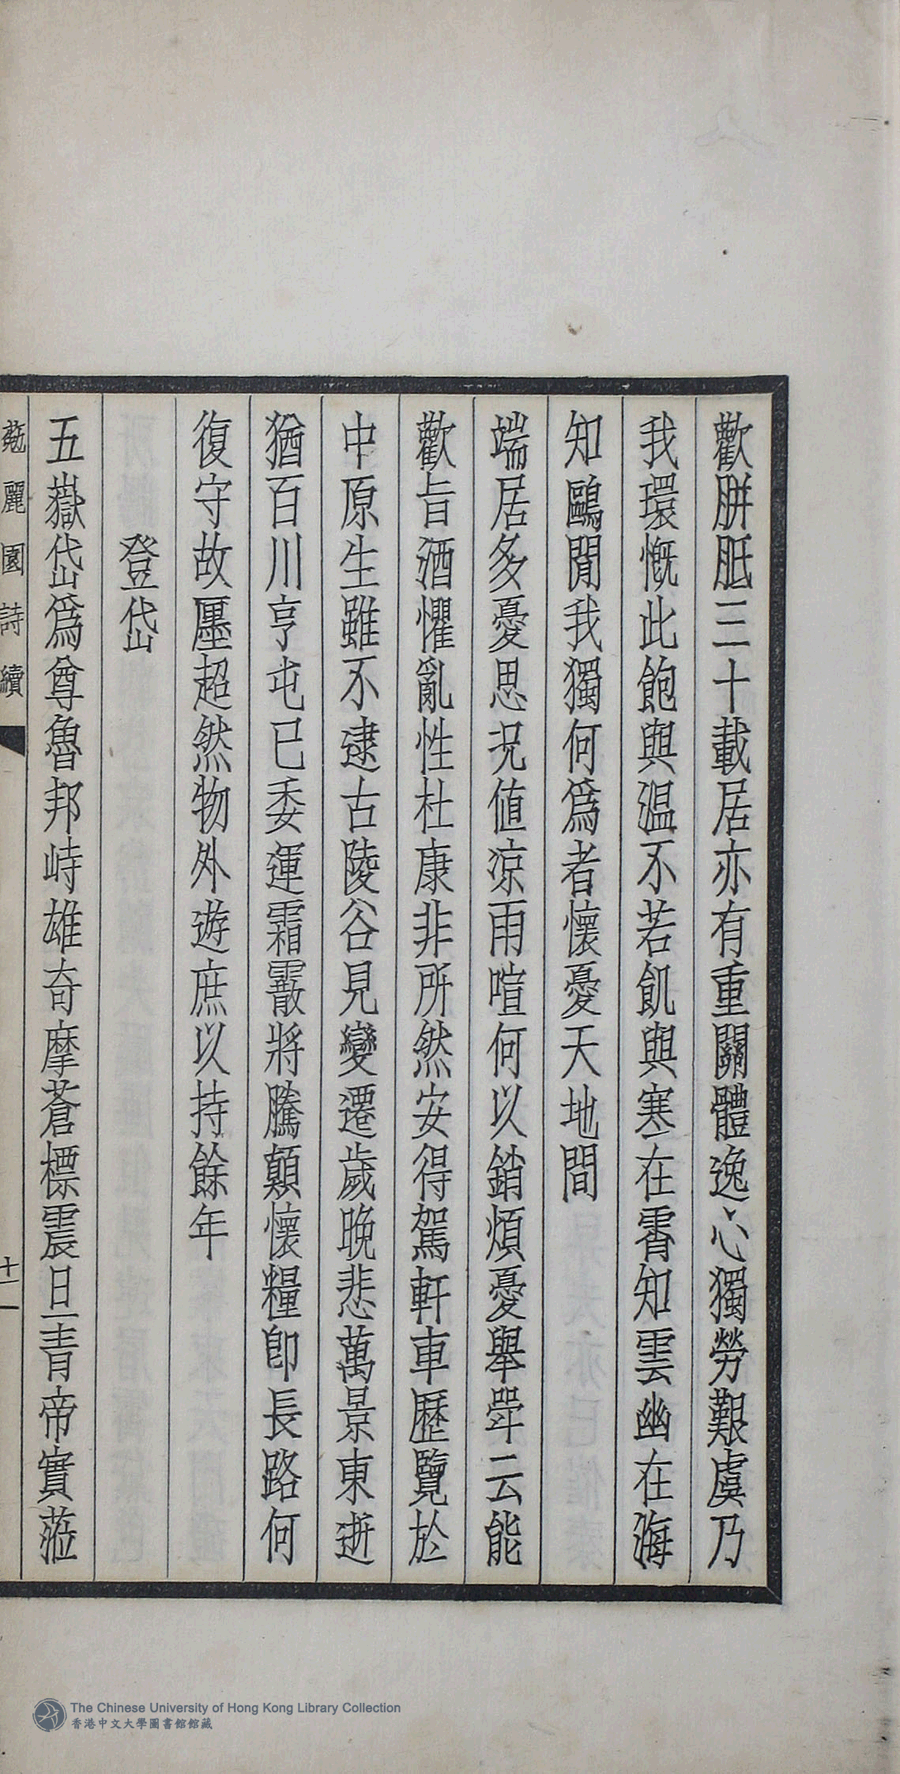 歡胼胝三十載居亦有重關體逸心獨勞艱虞乃
我環慨此飽與溫不若飢與寒在霄知雲幽在海
知鷗閒我獨何為者懷憂天地間
端居多憂思況值涼雨喧何以銷煩憂舉斝云能
歡旨酒懼亂性杜康非所然安得駕軒車歷覽於
中原生雖不逮古陵谷見變遷歲晚悲萬景東逝
猶百川亨屯已委運霜霰將騰顛懷糧卽長路何
復守故廛超然物外遊庶以持餘年
登岱
五嶽岱爲尊魯邦峙雄奇摩蒼標震旦青帝實蒞
麗園詩續
十一
The Chinese University of Hong Kong Library Collection
香港中文大學圖書館館藏